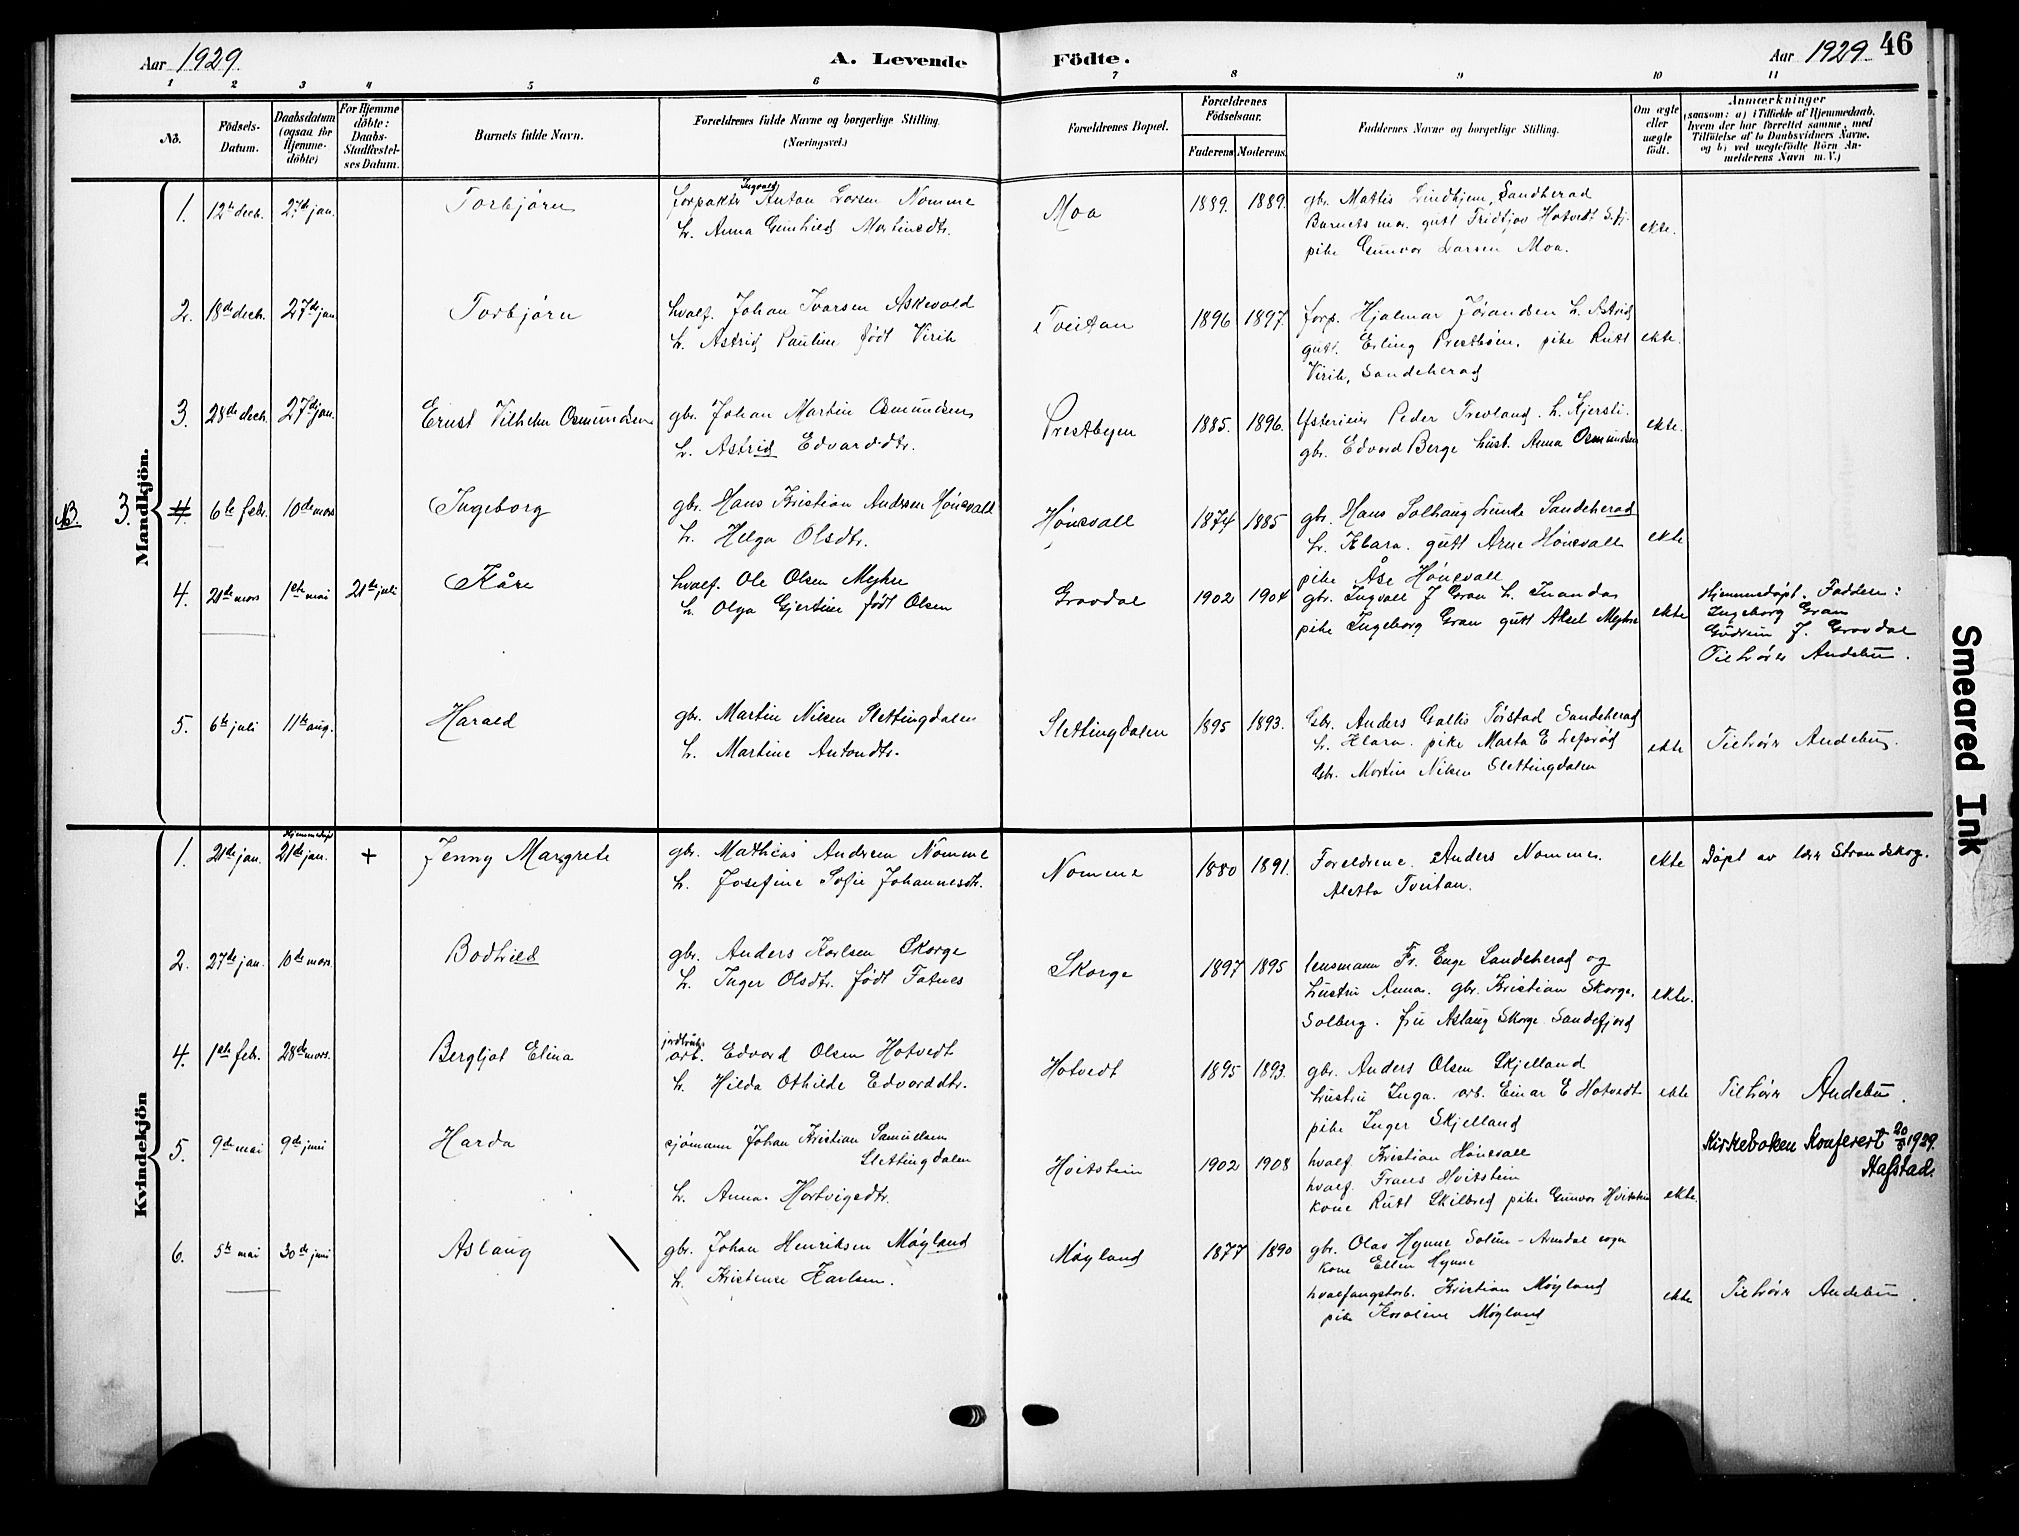 Aar 1929. A. Levende Födte. Aar 1929. 46
1 2 3 4 5 6 7 8 9 10 11
No.
Födsels-
Datum.
Daabsdatum
(ogsaa for
Hjemme-
döbte)
For Hjemme
döbte:
Daabs-
Stadfæstel-
ses Datum.
Barnets fulde Navn.
Forældrenes fulde Navne og borgerlige Stilling.
(Næringsvei.)
Forældrenes Bopæl.
Forældrenes
Födselsaar.
Faderens Moderens.
Faddernes Navne og borgerlige Stilling.
Om ægte
eller
uægte
födt.
Anmærkninger
(saasom: a) i Tilfælde af Hjemmedaab,
hvem der har forrettet samme, med
Tilföielse af to Daabsvidners Navne,
og b) ved uægtefödte Börn An-
melderens Navn m. V.)
Mandkjön.
1. 12te dech. 27de jan. Torbjørn
forpakter Ingvald Anton Larsen Nomme
h. Anna Gunhild Martinsdtr.
Moa 1889. 1889.
gbr. Mathis Lindhjem, Sandherad
Barnets mor. gutt Fridtjov Hotvedt S.fj.
pike Gunvor Larsen Moa.
ekte.
2. 18de dech. 27de jan Torbjørn
hvalf. Johan Ivarsen Askevold
h. Astrid Pauline født Virik
Tveitan 1896 1897.
forp. Hjalmar Jørandsen h. Astrid
gutt. Erling Prestbøen. pike Rutt
Virik, Sandeherad
ekte.
3. 28de dech. 27de jan. Ernst Vilhelm Osmundsen
gbr. Johan Martin Osmundsen
h. Astrid Edvarddtr.
Prestbyen 1885. 1896.
Peder Trevland. h. Kjersti.
gbr. Edvard Berge hust. Anna Osmundsen
ekte.
NB. 3. 4. 6te febr. 10de mars Ingeborg
gbr. Hans Kristian Andersen Hønsvall
h. Helga Olsdtr.
Hønsvall 1874 1885
gbr. Hans Solhaug Lunde Sandeherad
h. Klara. gutt Arne Hønsvall
pike Åse Hønsvall
ekte
4. 21de mars 1ste mai 21de juli Kåre
hvalf. Ole Olsen Myhre
h. Olga Gjertine født Olsen
Gravdal 1902 1904
gbr. Ingvall J Gran h. Inanda
pike Ingeborg Gran gutt Aksel Myhre
ekte
Hjemmedøpt. Faddere:
Ingeborg Gran
Gudrun J. Gravdal
Tilhører Andebu.
5. 6te juli 11te aug. Harald
gbr. Martin Nilsen Slettingdalen
h. Martine Antondtr.
Slettingdalen 1895 1893.
Gbr. Anders Gallis Tørstad Sandeherad
h. Klara. pike Marta E Lefsrød
Gbr. Martin Nilsen Slettingdalen
ekte
Tilhører Andebu.
Kvindekjön
1. 21de jan. Hjemmedøpt 21de jan. + Jenny Margrete
gbr. Mathias Andersen Nomme
h. Josefine Sofie Johannesdtr.
Nomme 1880 1891.
Foreldrene. Anders Nomme.
Aletta Tveitan.
ekte
Døpt av lærer Strandskog.
2. 27de jan. 10de mars. Bodhild
gbr. Anders Karlsen Skorge
h. Inger Olsdtr. født Fatnes
Skorge 1897 1895
lensmann Fr. Enge Sandeherad og
hustru Anna. gbr. Kristian Skorge.
Solberg. fru Aslaug Skorge Sandefjord
ekte.
4. 1ste febr. 28de mars. Bergljot Elina
jordbruks-
arb. Edvard Olsen Hotvedt
h. Hilda Othilde Edvarddtr.
Hotvedt 1895 1893.
gbr. Anders Olsen Skjelland
hustru Inga. arb. Einar E Hotvedt
pike Inger Skjelland
ekte
Tilhører Andebu.
5. 9de mai 9de juni Harda
sjømann Johan Kristian Samuelsen
Slettingdalen
h. Anna Hartvigsdtr.
Hvitstein 1902 1908
hvalf. Kristian Hønsvall
hvalf. Frans Hvitstein
kone Rutt Skilbred pike Gunvor Hvitstein
ekte.
Kirkeboken Konferert 20/8 1929.
Hafstad.
6. 5te mai 30de juni Aslaug
gbr. Johan Henriksen Møyland
h. Kristense Karlsen.
Møyland 1877 1890
gbr. Olav Hynne Solum - Arendal sogn
kone Ellen Hynne
hvalfangstarb. Kristian Møyland
pike Karoline Møyland
ekte
Tilhører Andebu.
Smeared Ink